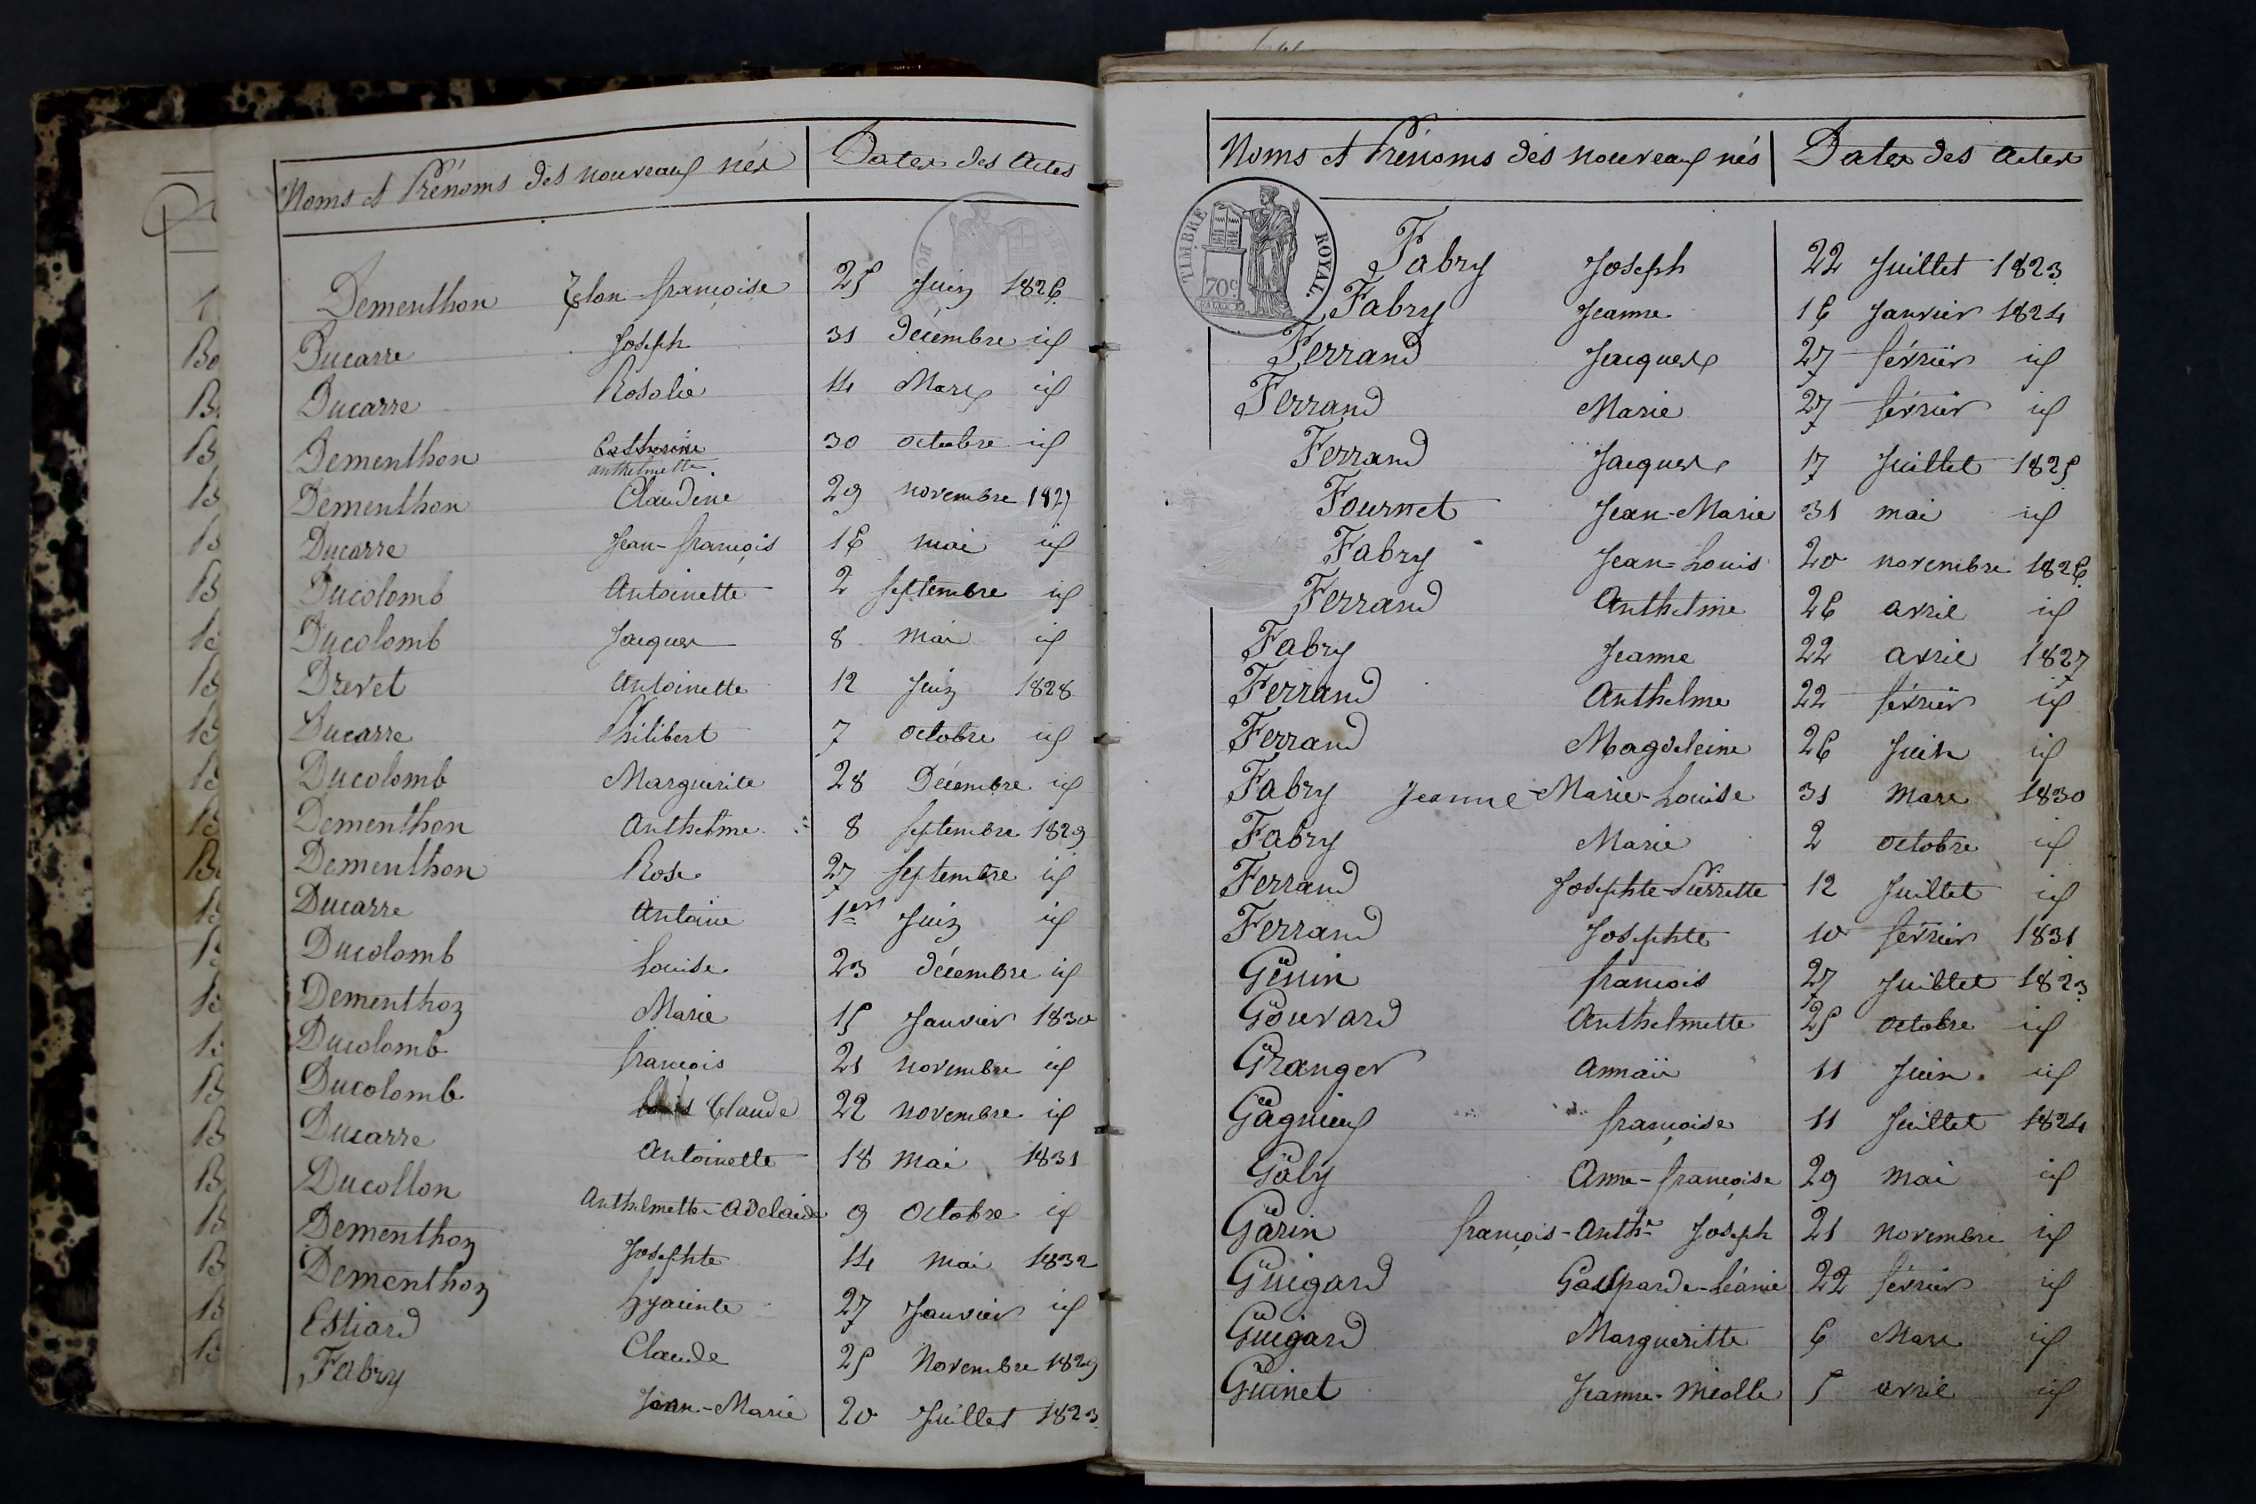 Noms et Prénoms des nouveaux nés Dates des Actes
Dementhon françoise 25 Juin 1826
Ducarre Joseph 31 décembre id
Ducarre Rosalie 14 Mars id
Dementhon Catherine 30 octobre id
anthelmette
Dementhon Claudine 29 novembre 1827
Ducarre Jean-françois 16 mai id
Ducolomb Antoinette 2 septembre id
Ducolomb Jacques 8 mai id
Drevet Antoinette 12 Juin 1828
Ducarre Philibert 7 octobre id
Ducolomb Marguerite 28 Décembre id
Dementhon Anthelme 8 septembre 1829
Dementhon Rose 27 septembre id
Ducarre Antoine 1er Juin id
Ducolomb Louise 23 décembre id
Dementhon Marie 15 Janvier 1830
Ducolomb françois 21 novembre id
Ducolomb Claude 22 novembre id
Ducarre Antoinette 18 mai 1831
Ducollon Anthelmette-Adelaide 9 Octobre id
Dementhon Josephte 14 mai 1832
Dementhon hyacinte 27 Janvier id
Estiard Claude 25 Novembre 1829
Fabry Jean-Marie 20 Juillet 1823
Noms et Prénoms des nouveaux nés Dates des actes
TIMBRE ROYAL
70c
Fabry Joseph 22 Juillet 1823
Fabry Jeanne 16 Janvier 1824
Ferrand Jacques 27 février id
Ferrand Marie 27 février id
Ferrand Jacques 17 Juillet 1825
Fournet Jean-Marie 31 mai id
Fabry Jean-Louis 20 novembre 1826
Ferrand Anthelme 26 avril id
Fabry Jeanne 22 avril 1827
Ferrand Anthelme 22 février id
Ferrand Magdeleine 26 Juin id
Fabry Jeanne-Marie-Louise 31 Mars 1830
Fabry Marie 2 octobre id
Ferrand Josephte-Pierrette 12 Juillet id
Ferrand Josephte 10 février 1831
Génin françois 27 Juillet 1823
Gouvard Anthelmette 25 octobre id
Granger 11 Juin id
Gagnieux françoise 11 Juillet 1824
Galy Anne-françoise 29 mai id
Garin françois-Anthe Joseph 21 novembre id
Guigard Gasparde-Léanie 22 février id
Guigard Margueritte 6 Mars id
Guinet Jeanne- 5 avril id